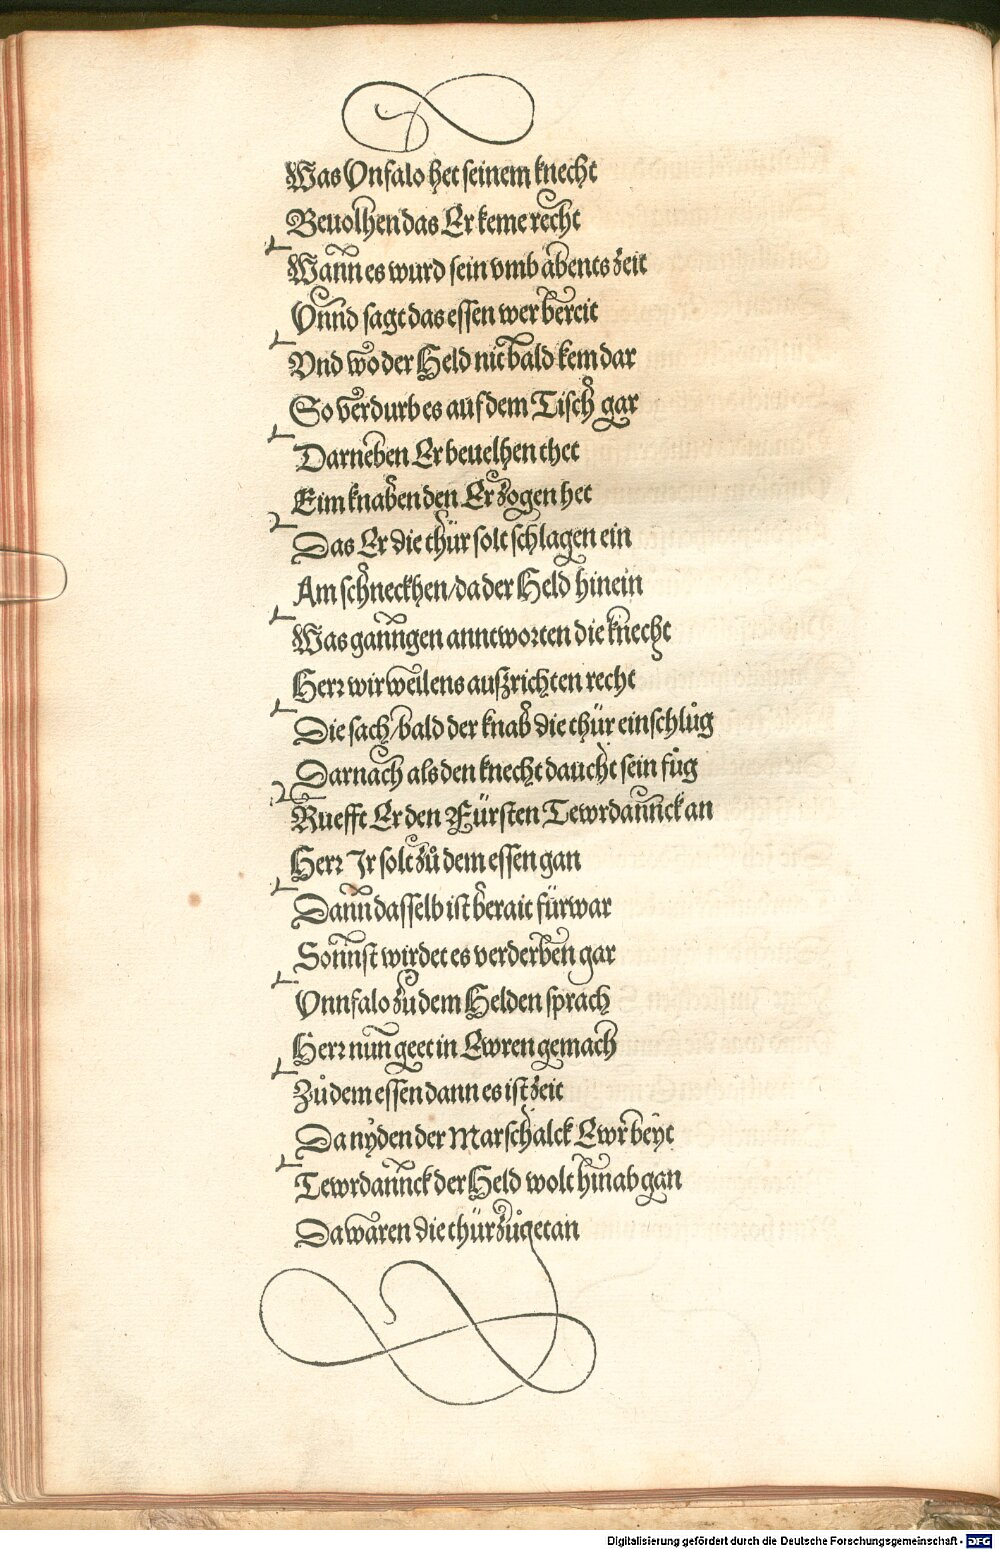 Was Vnfalo het seinem knecht
Beuolhen das Er keme recht
Wann es wurd sein vmb abents zeit
Vnnd sagt das essen wer bereit
Vnd wo der Held nit bald kem dar
So verdurb es auf dem Tisch gar
Darneben Er beuelhen thet
Eim knaben den Er zogen het
Das Er die thür solt schlagen ein
Am schneckhen/da der Held hinein
Was ganngen anntworten die knecht
Herr wir wellens auszrichten recht
Die sach/bald der knab die thür einschlůg
Darnach als den knecht daucht sein fůg
Ruefft Er den Fürsten Tewrdannck an
Herr Ir solt zů dem essen gan
Dann dasselb ist berait fürwar
Sonnst wirdet es verderben gar
Vnnfalo zu dem Helden sprach
Herr nun geet in Ewren gemach
Zů dem essen dann es ist zeit
Da nyden der Marschalck Ewr beyt
Tewrdannck der Held wolt hinab gan
Da waren die thür zůgetan
Digitalisierung gefördert durch die Deutsche Forschungsgemeinschaft - DFG